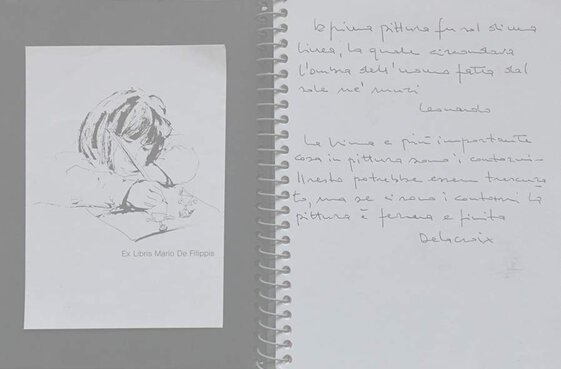 Ex Libris Mario De Filippis
la prima pittura fu sol di una
linea, la quale circondava
l'ombra dell'uomo fatta dal
sole ne' muri
Leonardo
La prima e più importante
cosa in pittura sono i contorni -
Il resto potrebbe essere trascura
to, ma se ci sono i contorni la
pittura è ferma e finita
Delacroix